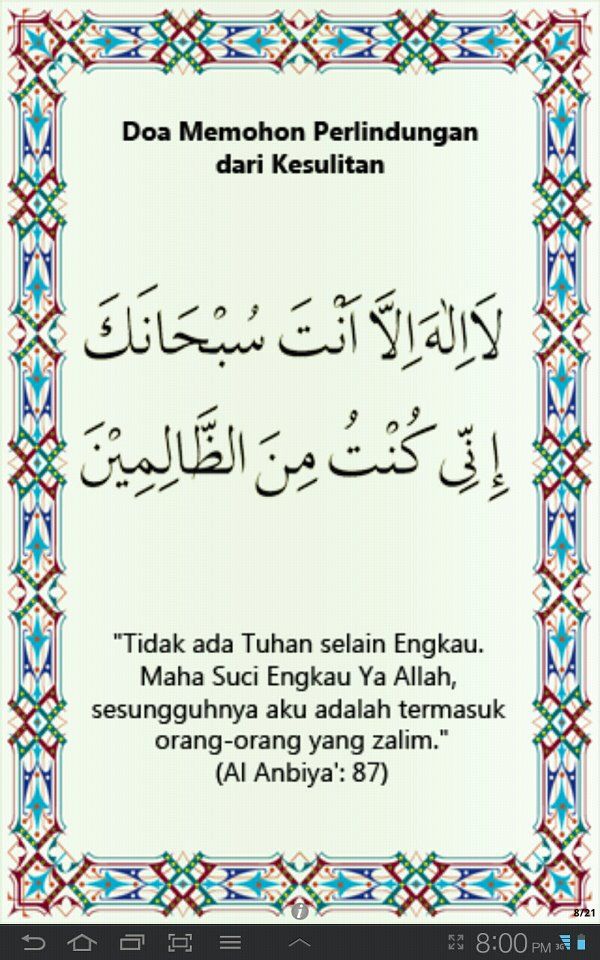 Doa Memohon Perlindungan
dari Kesulitan
لَااِلٰهَ اِلَّا اَنْتَ سُبْحَانَكَ
إِنِّي كُنْتُ مِنَ الظَّالِمِيْنَ
"Tidak ada Tuhan selain Engkau.
Maha Suci Engkau Ya Allah,
sesungguhnya aku adalah termasuk
orang-orang yang zalim."
(Al Anbiya': 87)
8/21
8:00 PM 3G